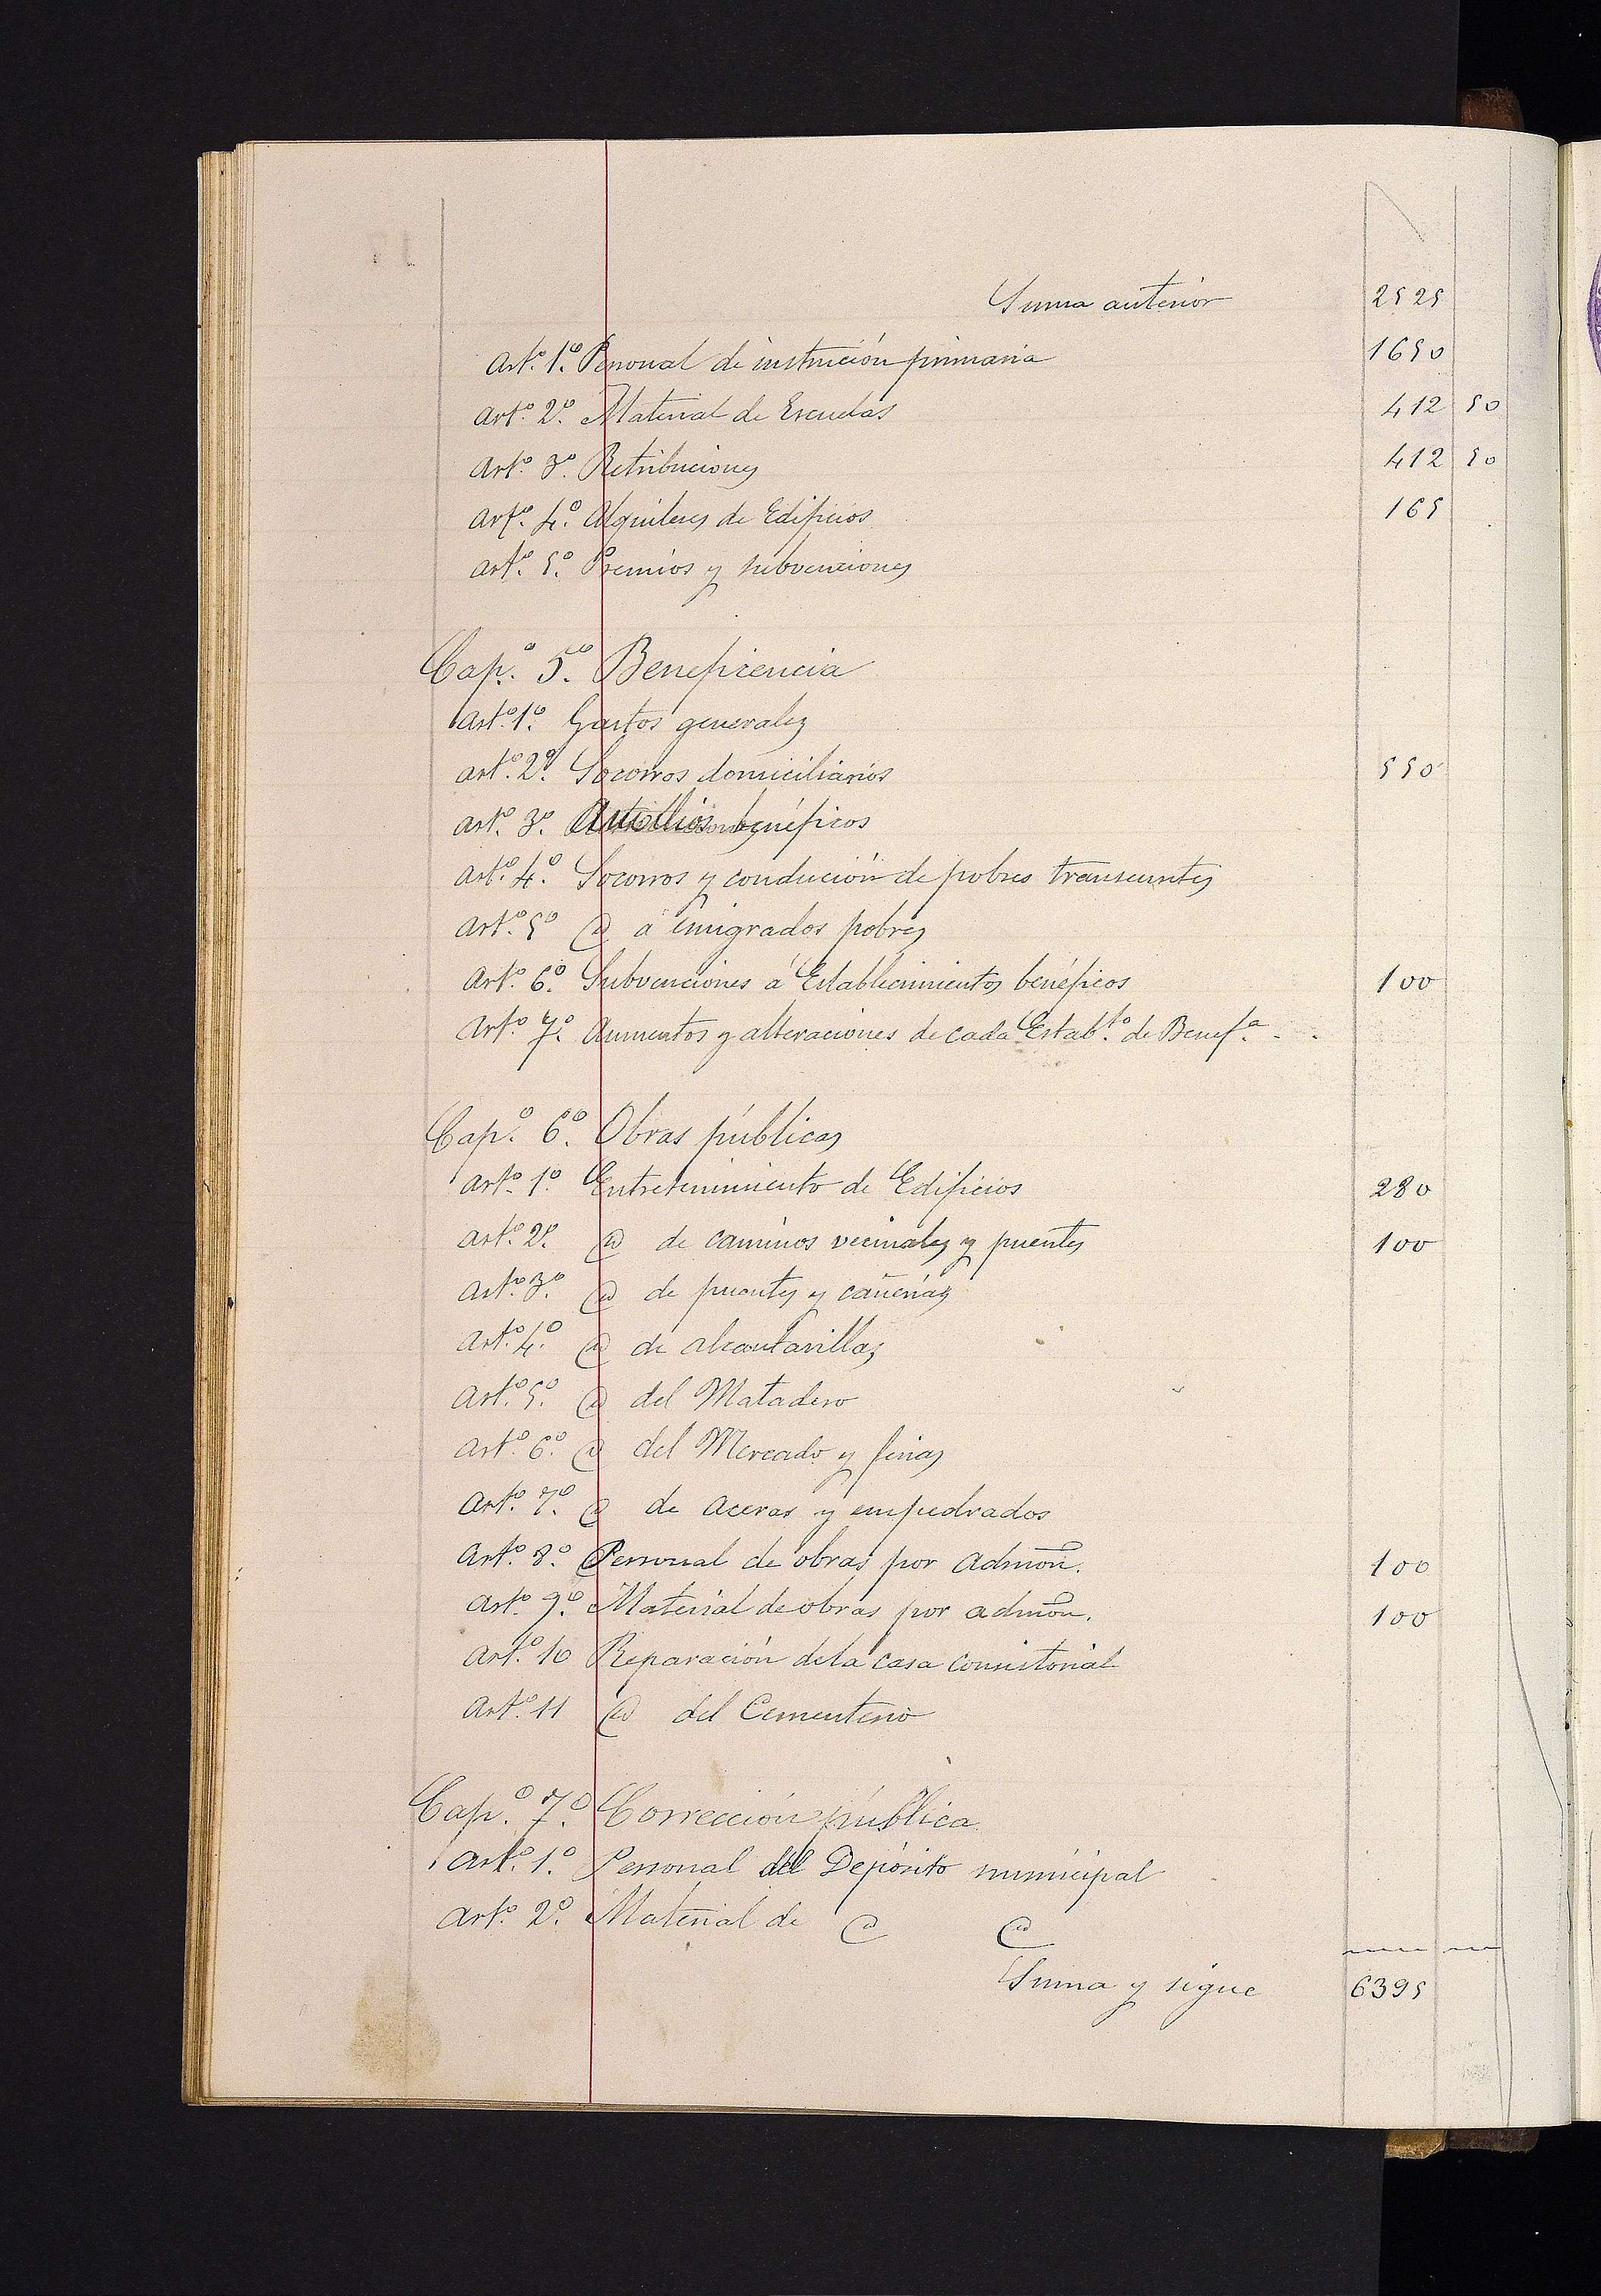 Suma anterior 2525
Artº. 1º. Personal de instrución primaria 1650
Artº. 2º. Material de Escuelas 412 50
Artº. 3º. Retribuciones 412 50
Artº. 4º. Alquileres de Edificios 165
Artº. 5º. Premios y subvenciones
Capº. 5º. Beneficencia
Artº. 1º. Gastos generales
Artº. 2º. Socorros domiciliarios 550
Artº. 3º. Ausilios benéficos
Artº. 4º. Socorros y condución de pobres transeuntes
Artº. 5º @ a emigrados pobres
Artº. 6º. Subvenciones á Establecimientos benéficos 100
Artº. 7º. Aumentos y alteraciones de cada Estabtº. de Benefª. - .
Capº. 6º. Obras públicas
Artº. 1º. Entretenimiento de Edificios 280
Artº. 2º. @ de caminos vecinales y puentes 100
Artº. 3º. @ de fuentes y cañerías
Artº. 4º. @ de alcantarillas
Artº. 5º. @ del Matadero
Artº. 6º. @ del Mercado y ferias
Artº. 7º. @ de aceras y empedrados
Artº. 8º. Personal de obras por admón. 100
Artº. 9º. Material de obras por admón. 100
Artº. 10 Reparación de la casa consistorial
Artº. 11 @ del Cementerio
Capº. 7º. Corrección pública
Artº. 1º. Personal del Depósito municipal
Artº. 2º. Material de @ @
Suma y sigue 6395